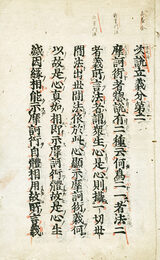 次說立義分第二
摩訶衍者總說有二種云何爲二一者法二
者義所言法者謂衆生心是心則攝一切世
間法出世間法依於此心顯示摩訶衍義何
以故是心真如相即示摩訶衍體故是心生
滅因緣相能示摩訶衍自體相用故所言義